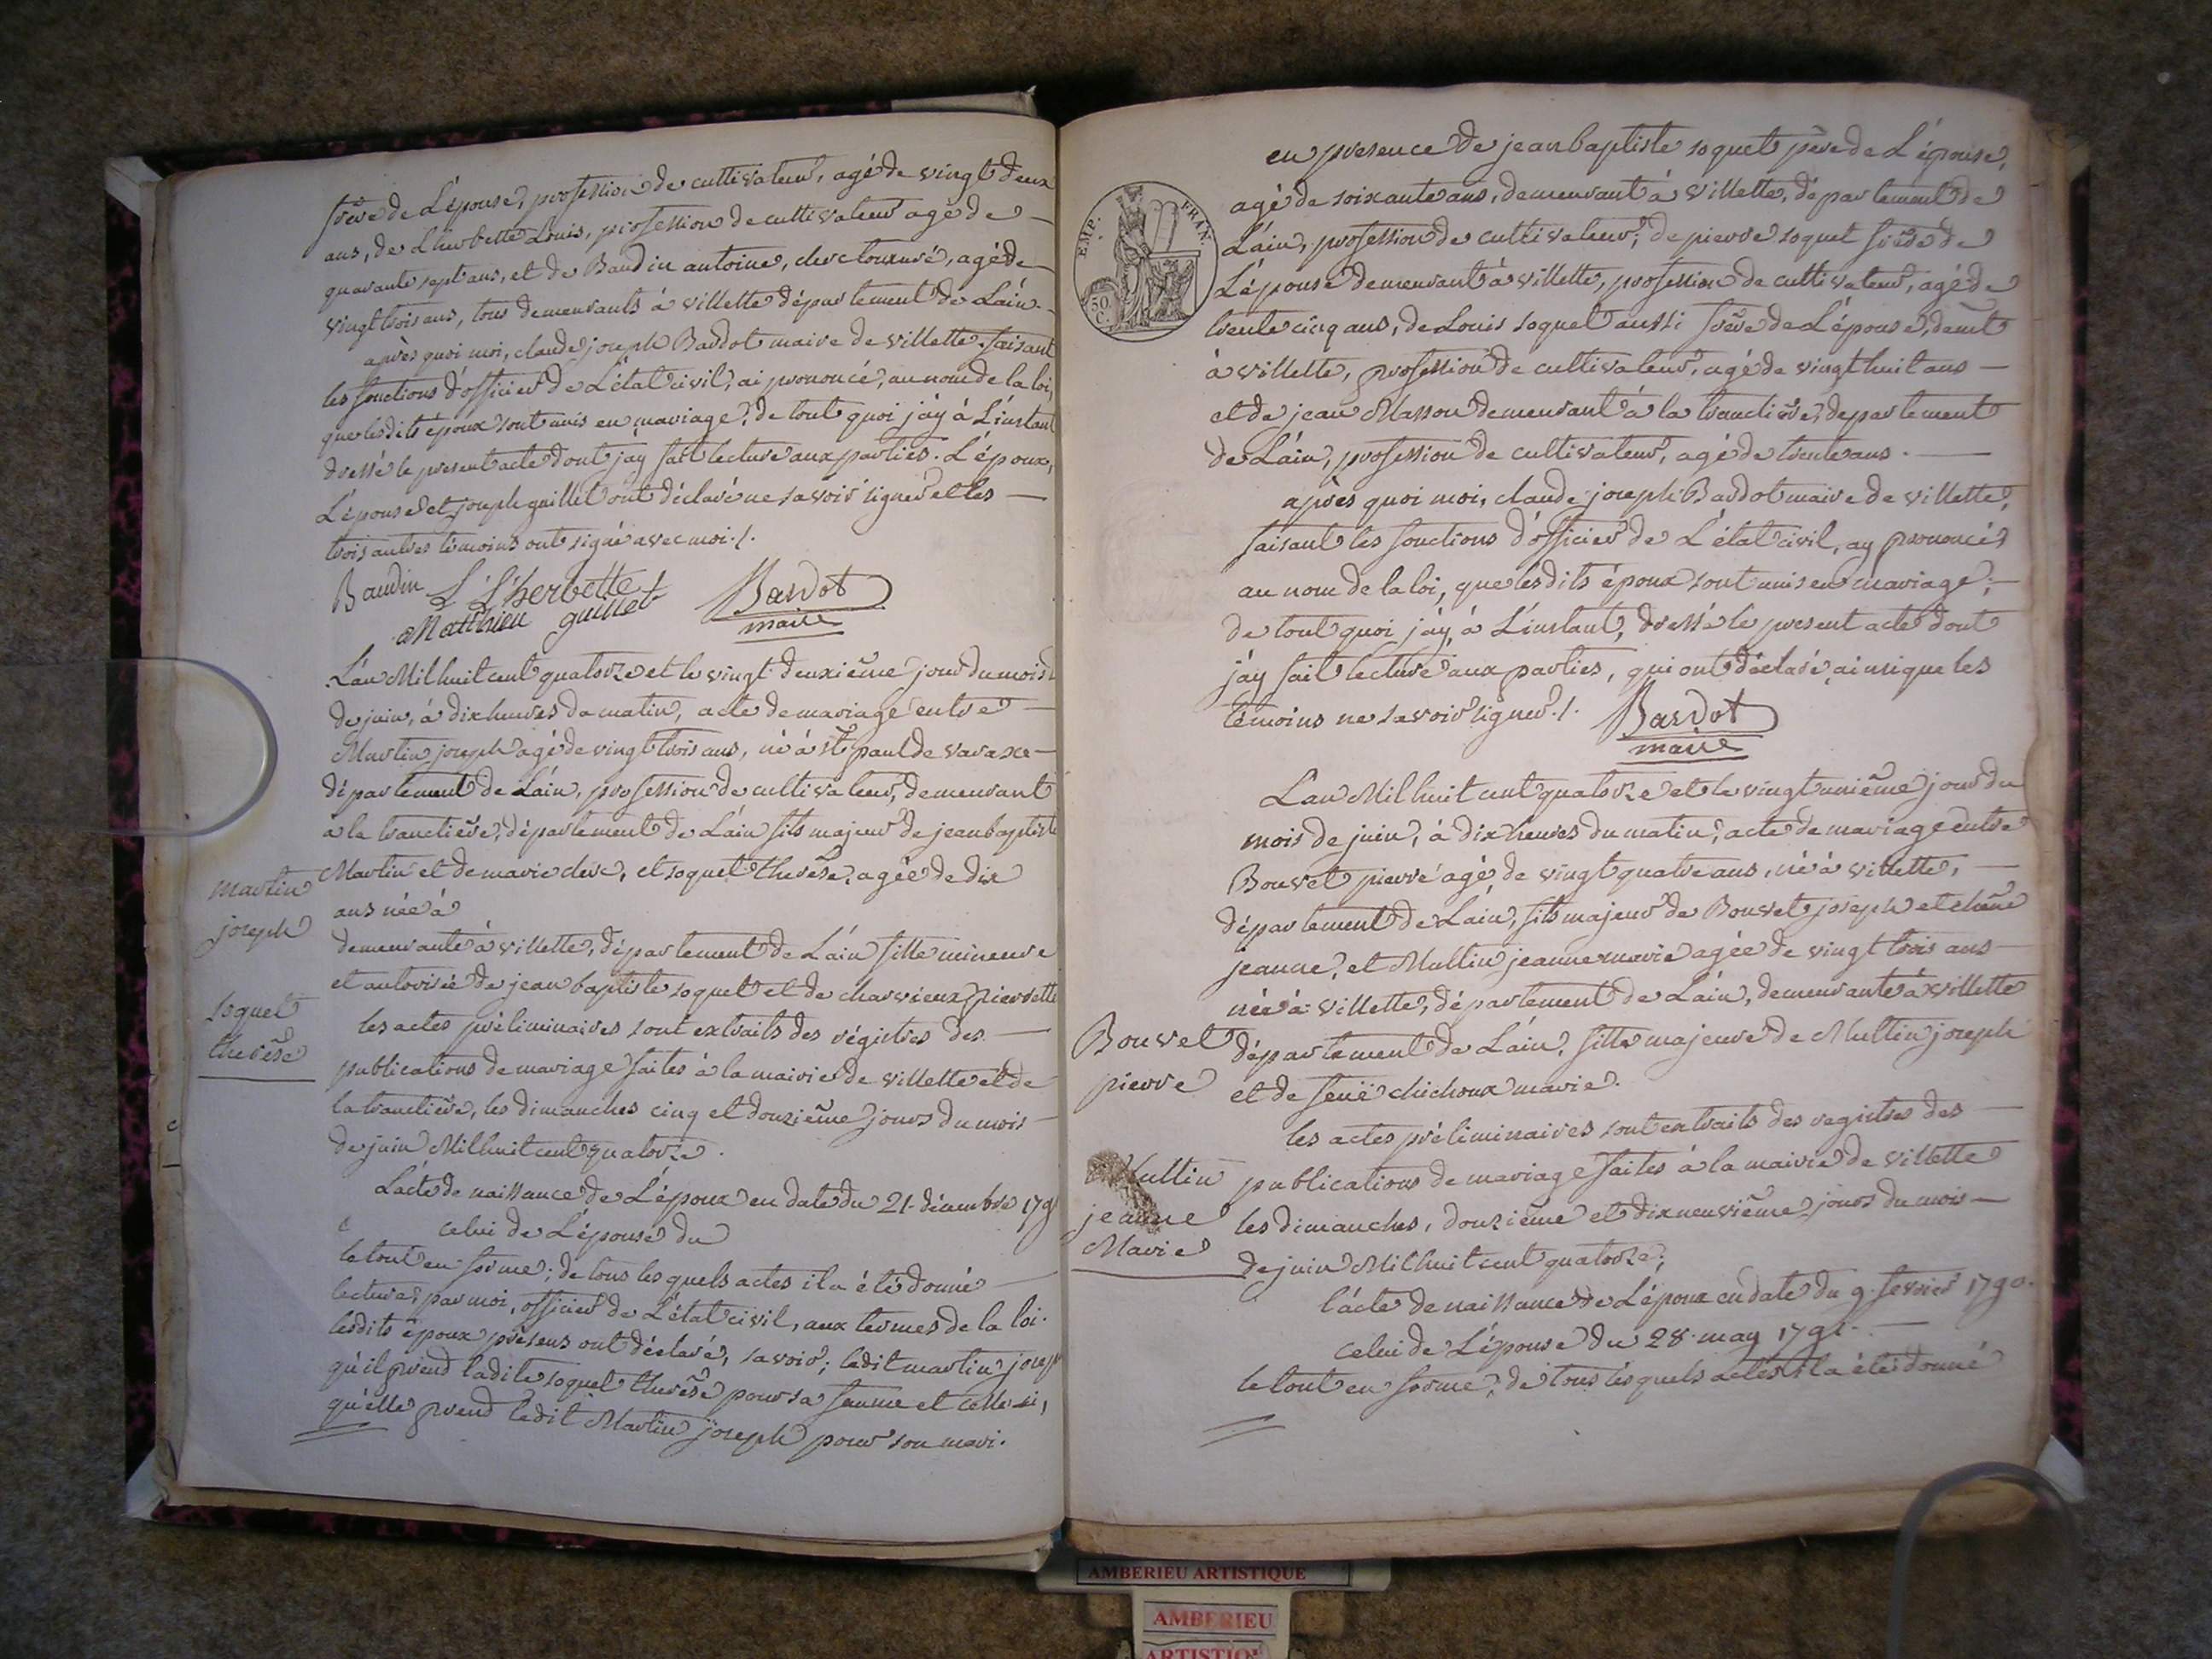 frère de L'épouse, profession de cultivateur, agé de vingt deux
ans, de Lherbette Louis, profession de cultivateur agé de
quarante sept ans, et de Baudin antoine, clerc tonsuré, agé de
vingt trois ans, tous demeurants à villette département de Lain.
après quoi moi, claude joseph Bardot maire de villette faisant
les fonctions d'officier de L'état civil, ai prononcé, au nom de la loi,
que lesdits époux sont unis en mariage; de tout quoi j'ay à L'instant
dressé le present acte dont j'ay fait lecture aux parties. L'époux,
L'épouse et joseph guillet ont déclaré ne savoir signer et les
trois autres témoins ont signé avec moi ./.
Baudin L L'herbette
Matthieu guillet Bardot
maire
L'an Mil huit cent quatorze et le vingt deuxième jour du mois
de juin, à dix heures du matin, acte de mariage entre
Martin joseph agé de vingt trois ans, né à st paul de varaxe
département de Lain, profession de cultivateur, demeurant
à la tranclière, département de Lain fils majeur de jean baptiste
Martin et de marie clerc, et soquet therèse, agée de dix
ans née à
demeurante à villette, département de Lain fille mineure
et autorisée de jean baptiste soquet et de charvieux pierrette
les actes préliminaires sont extraits des régistres des
publications de mariage faites à la mairie de villette et de
la tranclière, les dimanches cinq et douzième jours du mois
de juin Mil huit cent quatorze.
L'acte de naissance de L'époux en date du 21. décembre 179
celui de L'épouse du
le tout en forme; de tous lesquels actes il a été donné
lecture, par moi, officier de L'état civil, aux termes de la loi.
lesdits époux présens ont déclaré, savoir; ledit martin joseph
qu'il prend ladite soquet therèse pour sa femme et celle ci,
qu'elle prend ledit Martin joseph pour son mari.
martin
joseph
soquet
therèse
en presence de jean baptiste soquet père de L'épouse,
agé de soixante ans, demeurant à villette, département de
Lain, profession de cultivateur; de pierre soquet frère de
L'épouse demeurant à villette, profession de cultivateur, agé de
trente cinq ans, de Louis soquet aussi frère de L'épouse, demt
à villette, profession de cultivateur, agé de vingt huit ans
et de jean Masson demeurant à la tranclière, departement
de Lain, profession de cultivateur, agé de trente ans.
après quoi moi, claude joseph Bardot maire de villette,
faisant les fonctions d'officier de L'état civil, ay prononcé,
au nom de la loi, que lesdits époux sont unis en mariage;
de tout quoi j'ay, à L'instant, dressé le present acte dont
j'ay fait lecture aux parties, qui ont déclaré, ainsi que les
témoins ne savoir signer ./. Bardot
maire
EMP. FRAN.
50.
C.
L'an Mil huit cent quatorze et le vingt unième jour du
mois de juin, à dix heures du matin, acte de mariage entre
Bouvet pierre agé de vingt quatre ans, né à villette,
département de Lain, fils majeur de Bouvet joseph et
jeanne, et Multin jeanne marie agée de vingt trois ans
née à villette, département de Lain, demeurante à villette
département de Lain, fille majeure de Multin joseph
et de feue chichoux marie.
les actes préliminaires sont extraits des registres des
publications de mariage faites à la mairie de villette
les dimanches, douzième et dixneuvième jours du mois
de juin Mil huit cent quatorze;
l'acte de naissance de L'époux en date du 9. fevrier 1790.
celui de L'épouse du 28. may 1791.
le tout en forme, de tous lesquels actes il a été donné
Bouvet
pierre
Multin
jeanne
Marie
AMBERIEU ARTISTIQUE
AMBERIEU
ARTISTIQUE